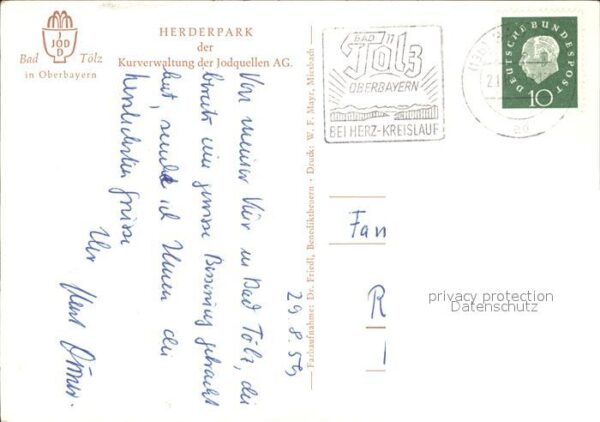 HERDERPARK
der
Kurverwaltung der Jodquellen AG.
JOD
Bad Tölz
in Oberbayern
Von meiner Kur in Bad Tölz, die
bereits eine grosse Besserung gebracht
hat, sende ich Ihnen die
herzlichsten Grüsse
Ihr
29.8.59
Farbaufnahme: Dr. Friedl, Benediktbeuern · Druck: W. F. Mayr, Miesbach
BAD
Tölz
OBERBAYERN
BEI HERZ-KREISLAUF
DEUTSCHE BUNDESPOST
10
Fan
R
privacy protection
Datenschutz
1